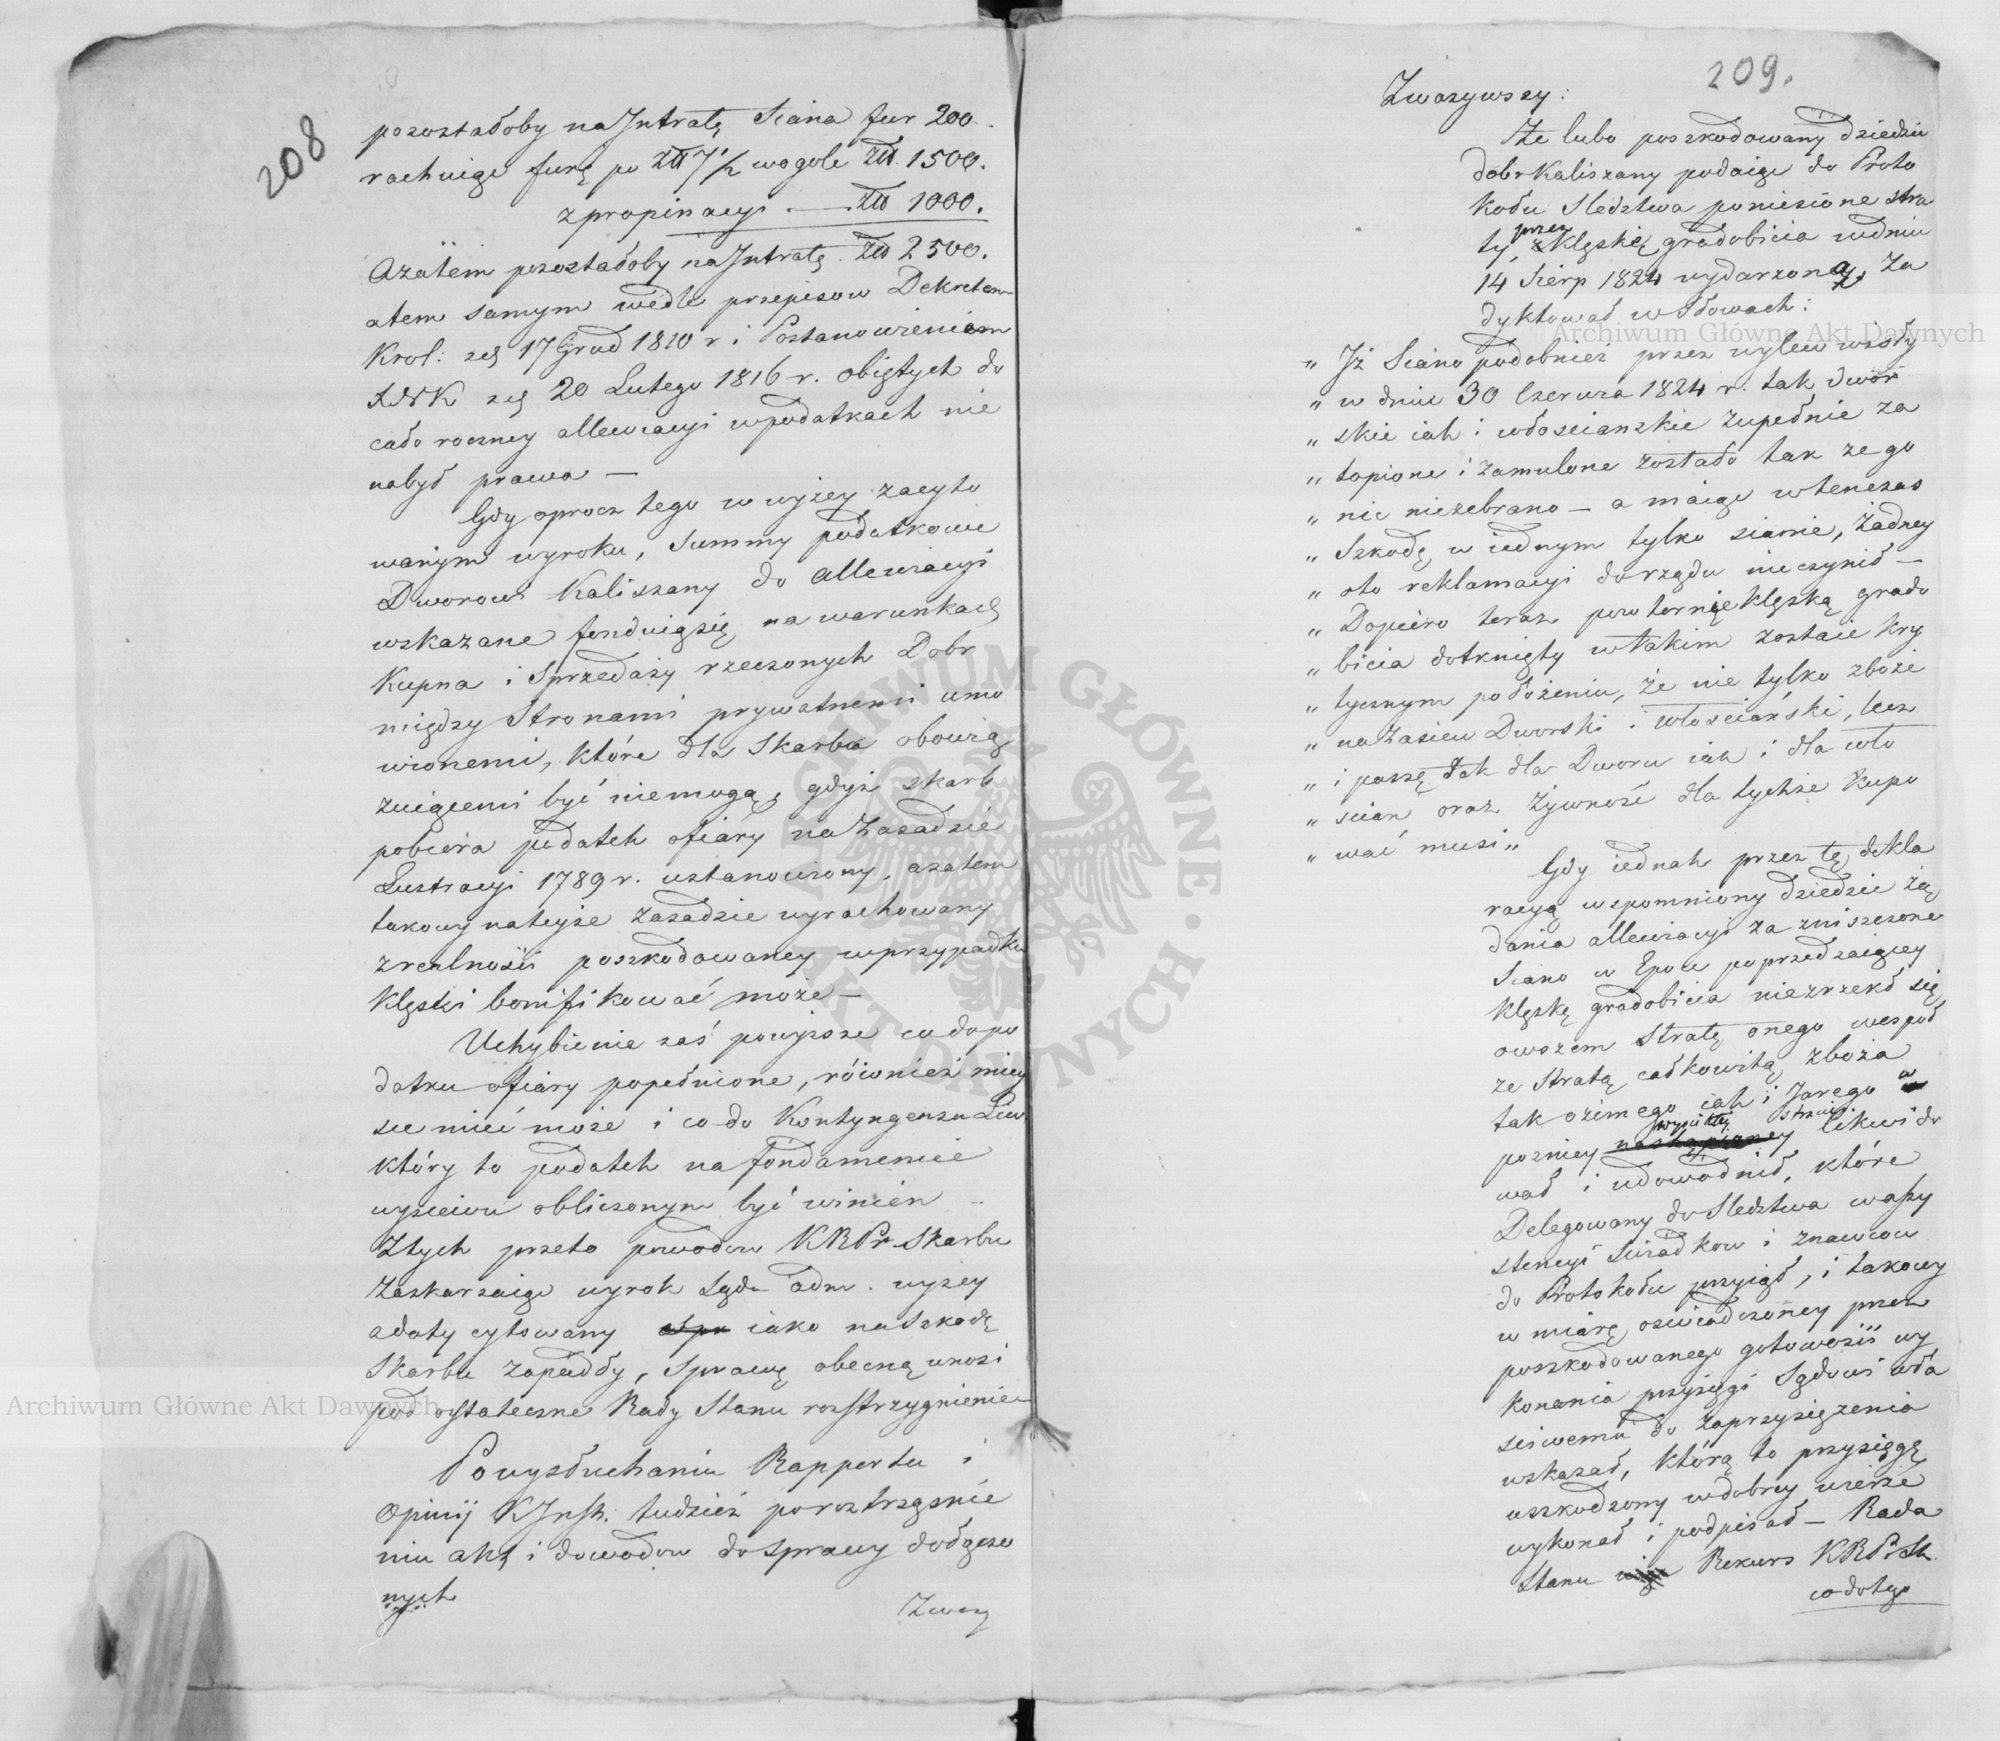 208
pozostałoby na Jntratę Siana fur 200.
rachuiąc furę po Złł 7 1/2 wogole Złł. 1500.
z propinacyi . — . Złł 1000.
Azatem pozostałoby na Jntratę Złł 2500.
atem samym wedle przepisow Dekretem
Krol: zdn 17 Grud 1810 r i Postanowieniem
zdn 20 Lutego 1816 r. obiętych do
cało roczney allewiacyi w podatkach nie
nabył prawa —
Gdy oprocz tego w wyżey zacyto
wanym wyroku, Summy podatkowe
Dworowi Kaliszany do allewiacyi
wskazane fonduią się na warunkach
Kupna i Sprzedaży rzeczonych Dobr
między Stronami prywatnemi umo
wionemi, które dla Skarbu obowią
zuiącemi być niemogą, gdyż skarb
pobiera podatek ofiary na Zasadzie
Lustracyi 1789 r. ustanowiony, azatem
takowy na teyże zasadzie wyrachowany
z realności poszkodowaney w przypadku
Klęski bonifikować może —
Uchybienie zaś powyższe co do po
datku ofiary popełnione, również miey
sce mieć może i co do Kontyngensu Liw.
który to podatek na fondamencie
wysiewu obliczonym być winien —
Z tych przeto powodow KRPr Skarbu
Zaskarzaiąc wyrok Sądu adm. wyżey
z daty cytowany iako na Szkodę
Skarbu zapadły, Sprawę obecną wnosi
pod ostateczne Rady Stanu rozstrzygnienie
Po wysłuchaniu Rapportu i
Opinij K Jnstr. tudzież po roztrząśnie
niu akt i dowodow do Sprawy dołączo
nych
Zwazy
209.
Zwazywszy:
Że lubo poszkodowany dziedzic
dobr Kaliszany podaiąc do Proto
kołu Sledztwa poniesione stra
ty, przez Klęskę gradobicia w dniu
14 Sierp 1824 wydarzoną, za
dyktował w słowach:
„ Jż Siano podobnież przez wylew wody
„ w dniu 30 Czerwca 1824 r. tak dwor
„ skie iak i włościanskie zupełnie za
„ topione i zamulone zostało tak że go
„ nic niezebrano — a maiąc wtenczas
„ Szkodę w iednym tylko sianie, żadney
„ oto reklamacyi do rządu nieczynił —
„ Dopiero teraz powtornie klęską grado
„ bicia dotknięty w takim zostaie kry
„ tycznym położeniu, że nie tylko zboże
„ na Zasiew Dworski i włościański, lecz
„ i paszę tak dla Dworu iak i dla wło
„ scian oraz żywność dla tychże kupo
„ wać musi „
Gdy iednak przez tę dekla
racyą wspomniony dziedzic żą
dania allewiacyi za zniszczone
Siano w Epoce poprzedzaiącey
Klęskę gradobicia niezrzekł się
owszem Stratę onego wespoł
ze Stratą całkowitą zboża
tak ozimego iak i Jarego w
pozniey likwido
wał i udowodnił, które
Delegowany do Sledztwa w assy
stencyi Swiadkow i znawcow
do Protokołu przyiął, i takowy
w miarę oswiadczoney przez
poszkodowanego gotowości wy
konania przysięgi Sądowi wła
sciwemu do zaprzysiężenia
wskazał, którą to przysięgę
uszkodzony w dobrey wierze
wykonał i podpisał — Rada
Stanu Rekurs KRPr Sk.
co do tego